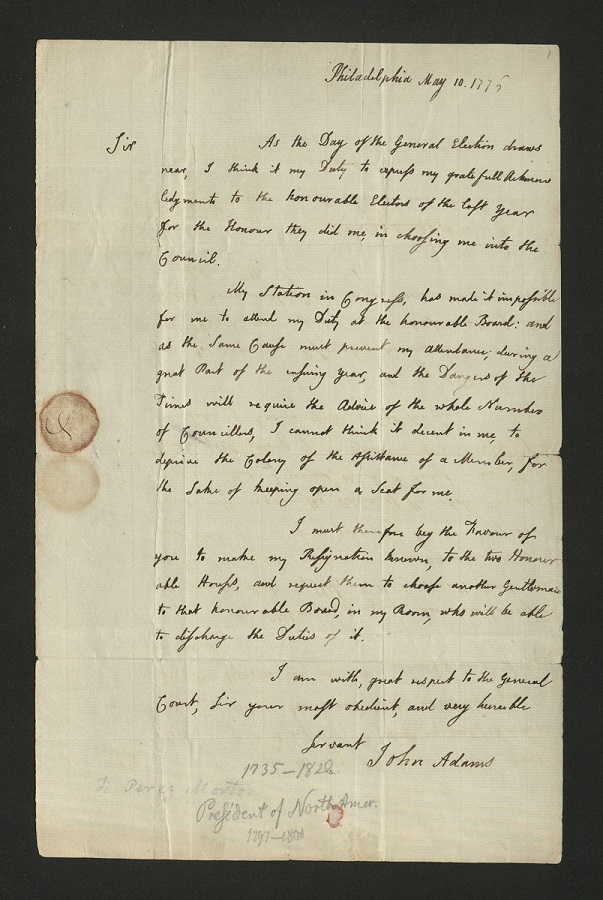 Philadelphia May 10. 1776
Sir As the Day of the General Election draws
near, I think it my Duty to express my gratefull Acknow
ledgments to the honourable Electors of the last Year
for the Honour they did me, in choosing me into the
Council.
My Station in Congress, has made it impossible
for me to attend my Duty at the honourable Board: and
as the Same Cause must prevent my attendance, during a
great Part of the ensuing year, and the Dangers of the
Times will require the Advice of the whole Number
of Councillors, I cannot think it decent in me, to
deprive the Colony of the Assistance of a Member, for
the Sake of keeping open a Seat for me.
I must therefore beg the Favour of
you to make my Resignation known, to the two Honour
able Houses, and request them to choose another Gentleman
to that honourable Board, in my Room, who will be able
to discharge the Duties of it.
I am with, great respect to the General
Court, Sir your most obedient, and very humble
servant John Adams
1735-1826
To Perez Morton
President of North-Amer.
1797-1801